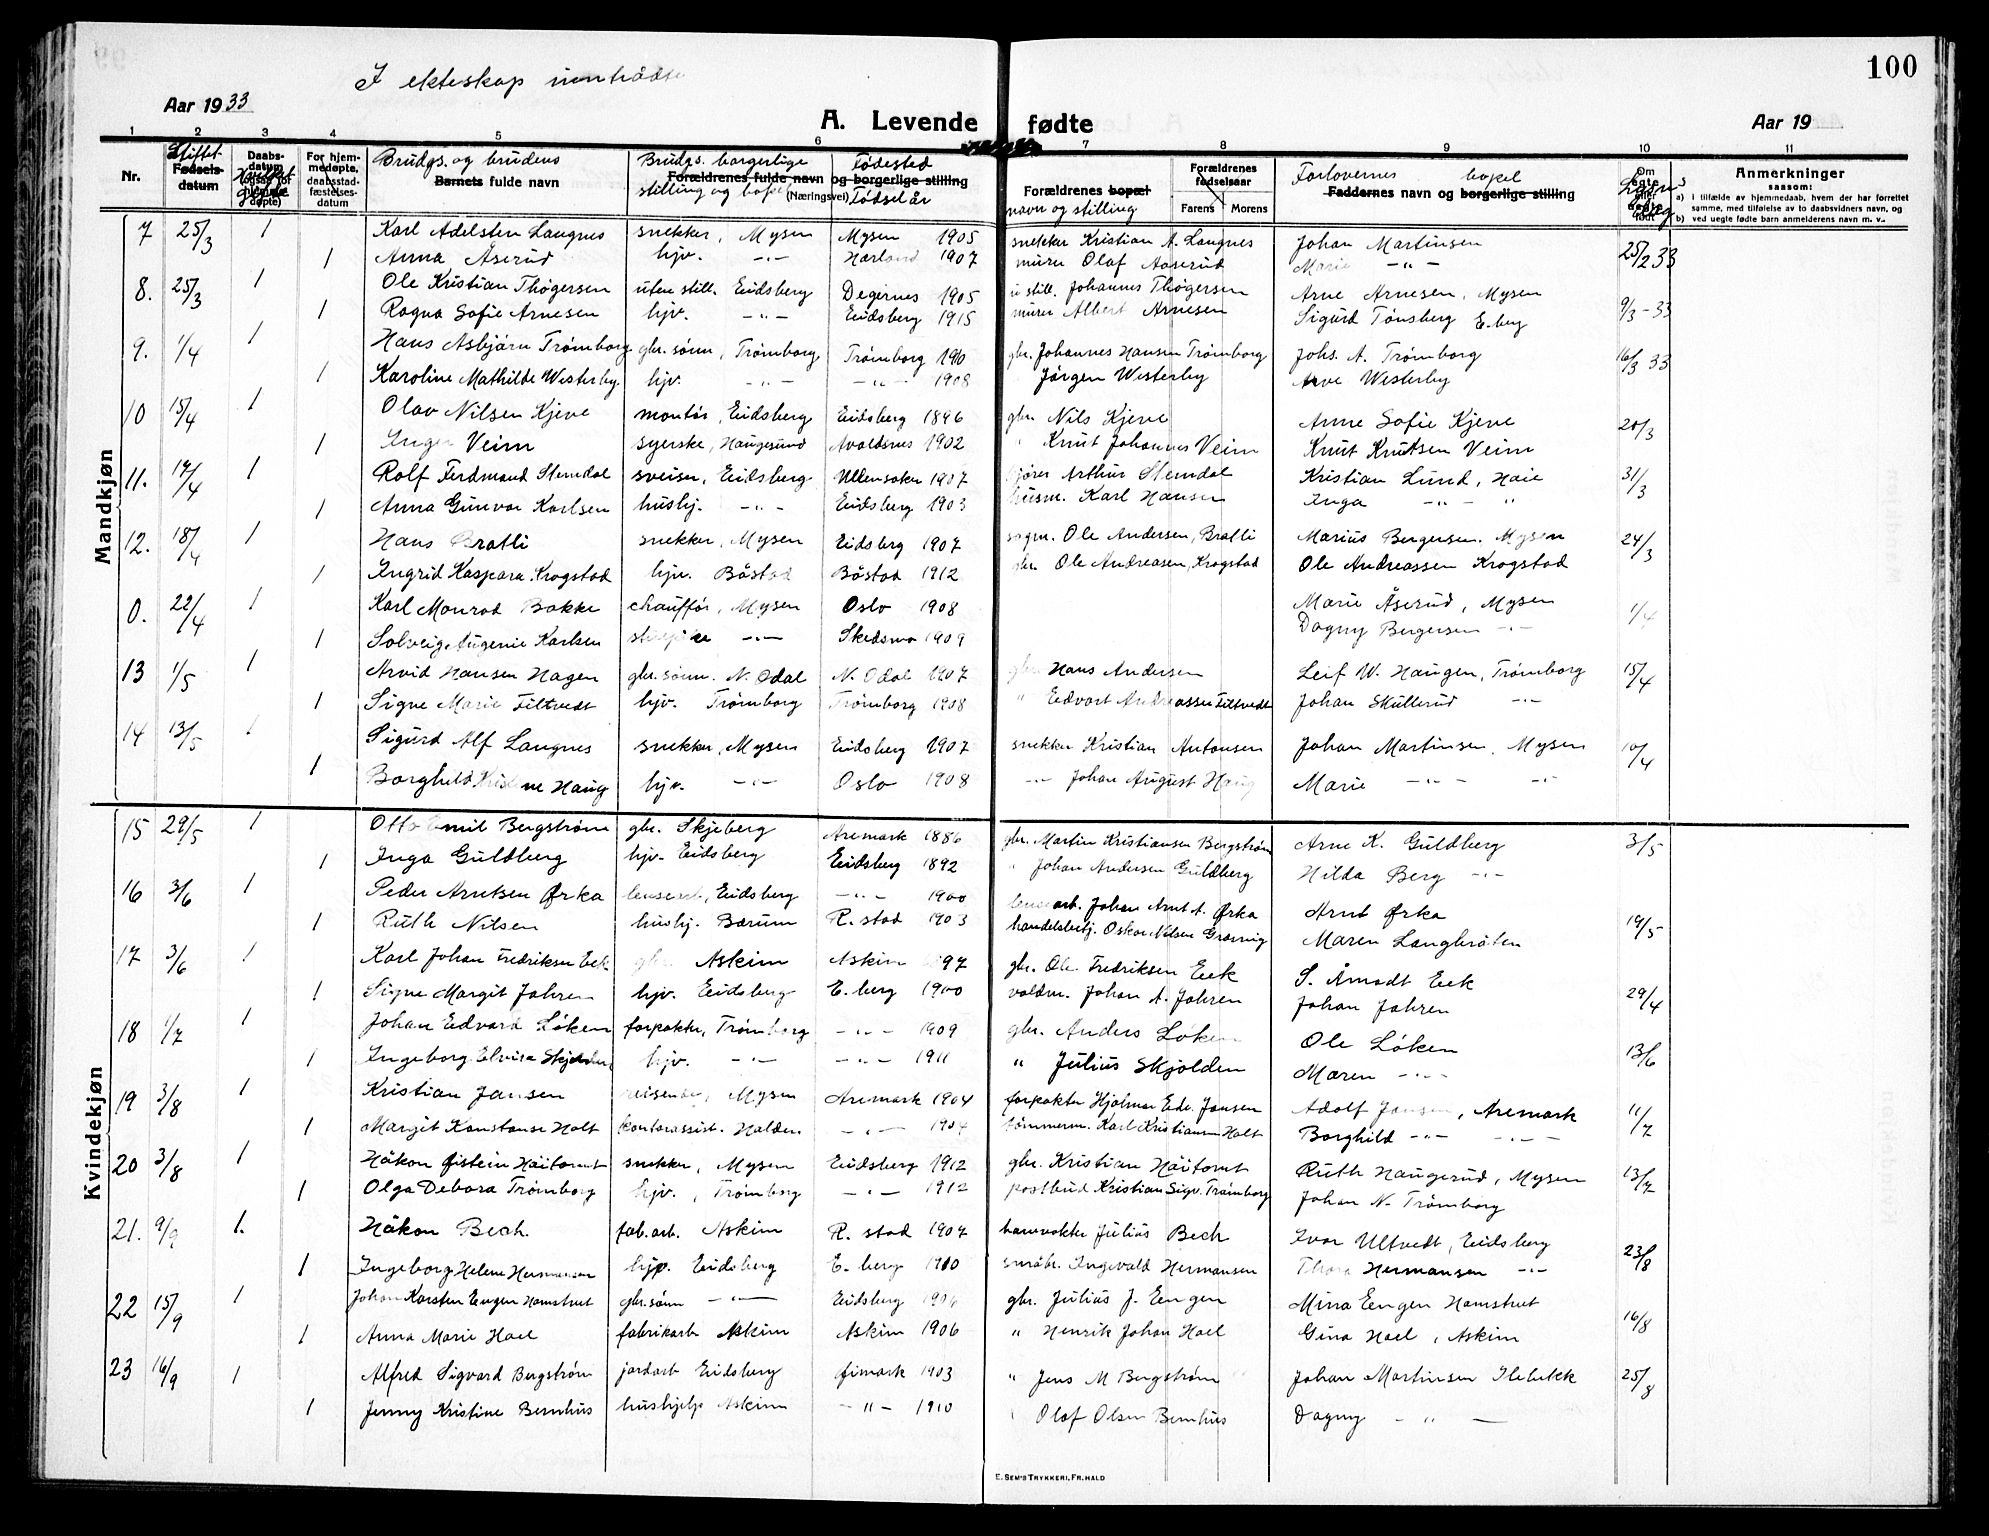 100
I ekteskap innträdte
Aar 1933
Aar 19
A. Levende fødte
1 2 3 4 5 6 7 8 9 10 11
Nr.
Stiftet
Fødsels-
datum
Daabs-
datum
For hjem-
medøpte,
daabsstad-
fæstelses-
datum
Brudgs. og brudens
Barnets fulde navn
Brudgs. borgerlige
Forældrenes fulde navn og borgerlige stilling
stilling og bopel (Næringsvei)
Fødested
Fødselsår
Forældrenes bopæl
navn og stilling
Forældrenes
fødselsaar
Farens Morens
Forlovernes bopel
Faddernes navn og borgerlige stilling
Om
ægte
eller
uægte
født
Lysnings
dag
Anmerkninger
saasom:
a) i tilfælde av hjemmedaab, hvem der har forrettet
samme, med tilføielse av to daabsvidners navn, og
b) ved uegte fødte barn anmelderens navn m. v.
Mandkjøn
7 25/3 1 Karl Adelsten Langnes snekker, Mysen Mysen 1905 snekker Kristian A. Langnes Johan Martinsen 25/2 33
1 Anna Åserud hjv. -"- Hærland 1907 murer Olaf Aaserud Marie -"-
8. 25/3 1 Ole Kristian Thøgersen uten still. Eidsberg Degernes 1905 u still. Johannes Thøgersen Arne Arnesen, Mysen 9/3-33
1 Ragna Sofie Arnesen hjv. -"- Eidsberg 1915 murer Albert Arnesen Sigurd Tønsberg E.berg
9. 1/4 1 Hans Asbjørn Trømborg gbr. sønn, Trømborg Trømborg 1910 gbr. Johannes Hansen Trømborg Johs. A. Trømborg 16/3 33
1 Karoline Mathilde Westerby hjv. -"- -"- 1908 Jørgen Westerby Arve Westerby
10 15/4 1 Olav Nilsen Kjeve montør, Eidsberg Eidsberg 1896 gbr. Nils Kjeve Anne Sofie Kjeve 20/3
1 Inger Veim syerske, Haugesund Avaldsnes 1902 " Knut Johannes Veim Knut Knutsen Veim
11. 17/4 1 Rolf Ferdinand Stemdal sveiser, Eidsberg Ullensaker 1907 Arthur Stemdal Kristian Lund, Haie 31/3
1 Anna Gunvor Karlsen hushj. -"- Eidsberg 1903 husm. Karl Hansen Inga -"- "
12. 18/4 1 Hans Bratli snekker, Mysen Eidsberg 1907 Ole Andersen, Bratli Marius Bergersen, Mysen 24/3
1 Ingrid Kaspara Krogstad hjv. Båstad Båstad 1912 gbr. Ole Andreasen, Krogstad Ole Andreassen Krogstad
0. 22/4 1 Karl Monrad Bakke chauffør, Mysen Oslo 1908 Marie Åserud, Mysen 1/4
1 Solveig Eugenie Karlsen -"- Skedsmo 1909 Dagny Bergersen -"-
13 1/5 1 Arvid Hansen Hagen gbr. sønn. N. Odal N. Odal 1907 gbr. Hans Andersen Leif W. Haugen, Trømborg 15/4
1 Signe Marie Filtvedt hjv. Trømborg Trømborg 1908 " Edvart Andreassen Filtvedt Johan Skullerud -"-
14 13/5 1 Sigurd Alf Langnes snekker, Mysen Eidsberg 1907 snekker Kristian Antonsen Johan Martinsen, Mysen 10/4
1 Borghild Kristine Haug hjv. -"- Oslo 1908 -"- Johan August Haug Marie -"- -"-
Kvindekjøn
15 29/5 1 Otto Emil Bergstrøm gbr. Skjeberg Aremark 1886 gbr. Martin Kristiansen Bergstrøm Arne K. Guldberg 3/5
1 Inga Guldberg hjv. Eidsberg Eidsberg 1892 " Johan Andersen Guldberg Hilda Berg -"-
16 3/6 1 Peder Arntsen Ørka lensearb., Eidsberg -"- 1900 lensearb. Johan Arnt A. Ørka Arnt Ørka 19/5
1 Ruth Nilsen hushj. Bærum R. stad 1903 handelsbetj. Oskar Nilsen Maren Langbråten
17 3/6 1 Karl Johan Fredriksen Eek gbr. Askim Askim 1897 gbr. Ole Fredriksen Eek S. Åmodt Eek 29/4
1 Signe Margit Jahren hjv. Eidsberg E. berg 1900 valdm. Johan A. Jahren Johan Jahren
18 1/7 1 Johan Edvard Løken forpakter, Trømborg -"- 1909 gbr. Anders Løken Ole Løken 13/6
1 Ingeborg Elvira Skjolden hjv. -"- -"- 1911 " Julius Skjolden Maren -"-
19 3/8 1 Kristian Jansen reisende, Mysen Aremark 1904 forpakter Hjalmar Edv. Jansen Adolf Jansen, Aremark 11/7
1 Margit Konstanse Holt kontorassist. Halden -"- 1904 tømmerm. Karl Kristiansen Holt Borghild -"- -"-
20 3/8 1 Håkon Øistein Höitomt snekker, Mysen Eidsberg 1912 gbr. Kristian Höitomt Ruth Haugerud, Mysen 13/7
1 Olga Debora Trømborg hjv., Trømborg -"- 1912 postbud Kristian Sigv. Trømborg Johan N. Trømborg
21. 9/9 1. Håkon Bech. fab.arb. Askim R. stad 1907 banevokter Julius Bech Ivar Ultvedt, Eidsberg 23/8
1 Ingeborg Helene Hermansen hjp. Eidsberg E. berg 1910 småbr. Ingevald Hermansen Thora Hermansen -"-
22 15/9 1 Johan Karsten Eengen Hamstret gbr. sønn -"- Eidsberg 1906 gbr. Julius J. Eengen Mina Eengen Hamstret 16/8
1 Anna Marie Hoel fabrikarb Askim Askim 1906 " Henrik Johan Hoel Gina Hoel, Askim
23 16/9 1 Alfred Sigvard Bergstrøm jordarb Eidsberg Øimark 1903 " Jens M Bergstrøm Johan Martinsen Ilebekk 25/8
1 Jenny Kristine Bernhus hushjelp Askim -"- 1910 Olaf Olsen Bernhus Dagny -"-
E. SEM'S TRYKKERI, FR. HALD